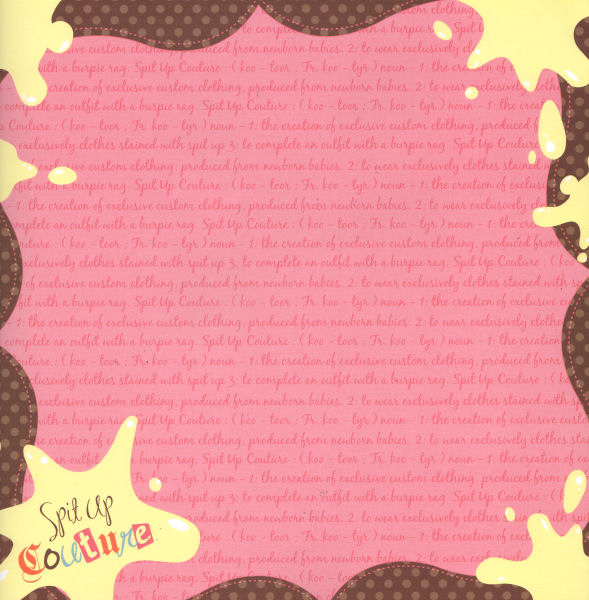 clothing,
to complete
custom clothing, produced from newborn babies. 2: to wear exclusively
with a burpie rag. Spit Up Couture : ( koo - toor ; Fr. koo - tyr ) noun - 1: the
creation of exclusive custom clothing, produced from newborn babies. 2: to wear exclusively
complete an outfit with a burpie rag. Spit Up Couture : ( koo - toor ; Fr. koo - tyr ) noun - 1: the
Couture : ( koo - toor ; Fr. koo - tyr ) noun - 1: the creation of exclusive custom clothing, produced
clothes stained with spit up 3: to complete an outfit with a burpie rag. Spit Up Couture
exclusive custom clothing, produced from newborn babies. 2: to wear exclusively clothes stained
with a burpie rag. Spit Up Couture : ( koo - toor ; Fr. koo - tyr ) noun - 1: the creation of
1: the creation of exclusive custom clothing, produced from newborn babies. 2: to wear exclusively
complete an outfit with a burpie rag. Spit Up Couture : ( koo - toor ; Fr. koo - tyr ) noun - 1: the
: ( koo - toor ; Fr. koo - tyr ) noun - 1: the creation of exclusive custom clothing, produced from
exclusively clothes stained with spit up 3: to complete an outfit with a burpie rag. Spit Up Couture : (
of exclusive custom clothing, produced from newborn babies. 2: to wear exclusively clothes stained with
with a burpie rag. Spit Up Couture : ( koo - toor ; Fr. koo - tyr ) noun - 1: the creation of exclusive
1: the creation of exclusive custom clothing, produced from newborn babies. 2: to wear exclusively
complete an outfit with a burpie rag. Spit Up Couture : ( koo - toor ; Fr. koo - tyr ) noun - 1: the
: ( koo - toor ; Fr. koo - tyr ) noun - 1: the creation of exclusive custom clothing, produced from
clothes stained with spit up 3: to complete an outfit with a burpie rag. Spit Up Couture : (
exclusive custom clothing, produced from newborn babies. 2: to wear exclusively clothes stained with
with a burpie rag. Spit Up Couture : ( koo - toor ; Fr. koo - tyr ) noun - 1: the creation of
creation of exclusive custom clothing, produced from newborn babies. 2: to wear exclusively clothes
an outfit with a burpie rag. Spit Up Couture : ( koo - toor ; Fr. koo - tyr ) noun - 1: the
Fr. koo - tyr ) noun - 1: the creation of exclusive custom clothing, produced from
to complete an outfit with a burpie rag. Spit Up Couture
produced from newborn babies. 2: to wear exclusively
Couture : ( koo - toor ; Fr. koo - tyr ) noun - 1: the
custom clothing, produced from newborn babies. 2: to wear
burpie rag. Spit Up Couture : ( koo - toor ; Fr. koo - tyr )
Spit Up
Couture